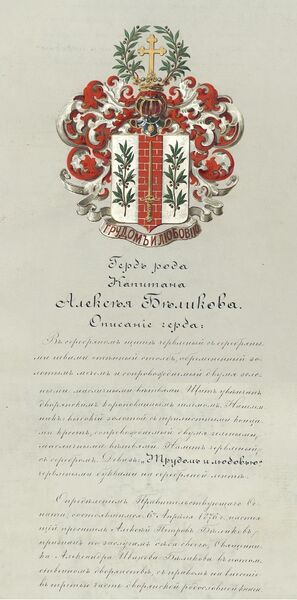 ТРУДОМЪ И ЛЮБОВІЮ
Гербъ рода
Капитана
Алексѣя Бѣликова.
Описаніе герба:
Въ серебряномъ щитѣ червленый съ серебряны-
ми швами стѣнный столбъ, обремененный зо-
лотымъ мечемъ и сопровождаемый двумя зеле-
ными масличными вѣтвями. Щитъ увѣнчанъ
дворянскимъ коронованнымъ шлемомъ. Нашлем-
никъ: золотой съ трилистными конца-
ми крестъ, сопровождаемый двумя зелеными,
масличными вѣтвями. Наметъ червленый,
съ серебромъ. Девизъ: „Трудомъ и любовью"
червлеными буквами на серебряной лентѣ.
Опредѣленіемъ Правительствующаго Се-
ната, состоявшимся 6 Апрѣля 1876 г.
проситель Алексѣй Петровъ Бѣликовъ
признанъ по заслугамъ дѣда своего,
Александра Иванова Бѣликова въ потом-
ственномъ дворянствѣ, съ правомъ на внесеніе
въ третью часть дворянской родословной книги.